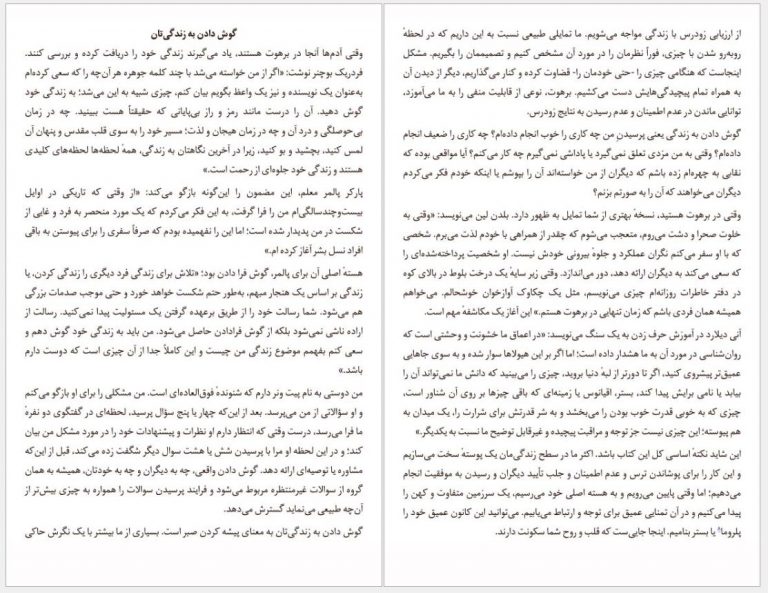 گوش دادن به زندگی‌تان
وقتی آدم‌ها آنجا در برهوت هستند، یاد می‌گیرند زندگی خود را دریافت کرده و بررسی کنند.
فردریک بوچنر نوشت: «اگر از من خواسته می‌شد با چند کلمه جوهره هر آن‌چه را که سعی کرده‌ام
به‌عنوان یک نویسنده و نیز یک واعظ بگویم بیان کنم، چیزی شبیه به این می‌شد؛ به زندگی خود
گوش دهید. آن را درست مانند رمز و راز بی‌پایانی که حقیقتاً هست ببینید. چه در زمان
بی‌حوصلگی و درد آن و چه در زمان هیجان و لذت؛ مسیر خود را به سوی قلب مقدس و پنهان آن
لمس کنید، بچشید و بو کنید، زیرا در آخرین نگاهتان به زندگی، همهٔ لحظه‌ها لحظه‌های کلیدی
هستند و زندگی خود جلوه‌ای از رحمت است.»
پارکر پالمر معلم، این مضمون را این‌گونه بازگو می‌کند: «از وقتی که تاریکی در اوایل
بیست‌وچندسالگی‌ام من را فرا گرفت، به این فکر می‌کردم که یک مورد منحصر به فرد و غایی از
شکست در من پدیدار شده است؛ اما این را نفهمیده بودم که صرفاً سفری را برای پیوستن به باقی
افراد نسل بشر آغاز کرده ام.»
هستهٔ اصلی آن برای پالمر، گوش فرا دادن بود: «تلاش برای زندگی فرد دیگری را زندگی کردن، یا
زندگی بر اساس یک هنجار مبهم، به‌طور حتم شکست خواهد خورد و حتی موجب صدمات بزرگی
هم می‌شود. شما رسالت خود را از طریق برعهده گرفتن یک مسئولیت پیدا نمی‌کنید. رسالت از
اراده ناشی نمی‌شود بلکه از گوش فرادادن حاصل می‌شود. من باید به زندگی خود گوش دهم و
سعی کنم بفهمم موضوع زندگی من چیست و این کاملاً جدا از آن چیزی است که دوست دارم
باشد.»
من دوستی به نام پیت ونر دارم که شنوندهٔ فوق‌العاده‌ای است. من مشکلی را برای او بازگو می‌کنم
و او سؤالاتی از من می‌پرسد. بعد از این‌که چهار یا پنج سؤال پرسید، لحظه‌ای در گفتگوی دو نفرهٔ
ما فرا می‌رسد، درست وقتی که انتظار دارم او نظرات و پیشنهادات خود را در مورد مشکل من بیان
کند؛ و در این لحظه او مرا با پرسیدن شش یا هشت سوال دیگر شگفت زده می‌کند. قبل از این‌که
مشاوره یا توصیه‌ای ارائه دهد. گوش دادن واقعی، چه به دیگران و چه به خودتان، همیشه به همان
گروه از سوالات غیرمنتظره مربوط می‌شود و فرایند پرسیدن سوالات را همواره به چیزی بیش‌تر از
آن‌چه طبیعی می‌نماید گسترش می‌دهد.
گوش دادن به زندگی‌تان به معنای پیشه کردن صبر است. بسیاری از ما بیشتر با یک نگرش حاکی
از ارزیابی زودرس با زندگی مواجه می‌شویم. ما تمایلی طبیعی نسبت به این داریم که در لحظهٔ
روبه‌رو شدن با چیزی، فوراً نظرمان را در مورد آن مشخص کنیم و تصمیممان را بگیریم. مشکل
اینجاست که هنگامی چیزی را -حتی خودمان را- قضاوت کرده و کنار می‌گذاریم، دیگر از دیدن آن
به همراه تمام پیچیدگی‌هایش دست می‌کشیم. برهوت، نوعی از قابلیت منفی را به ما می‌آموزد،
توانایی ماندن در عدم اطمینان و عدم رسیدن به نتایج زودرس.
گوش دادن به زندگی یعنی پرسیدنِ من چه کاری را خوب انجام داده‌ام؟ چه کاری را ضعیف انجام
داده‌ام؟ وقتی به من مزدی تعلق نمی‌گیرد یا پاداشی نمی‌گیرم چه کار می‌کنم؟ آیا مواقعی بوده که
نقابی به چهره‌ام زده باشم که دیگران از من خواسته‌اند آن را بپوشم یا اینکه خودم فکر می‌کردم
دیگران می‌خواهند که آن را به صورتم بزنم؟
وقتی در برهوت هستید، نسخهٔ بهتری از شما تمایل به ظهور دارد. بلدن لین می‌نویسد: «وقتی به
خلوت صحرا و دشت می‌روم، متعجب می‌شوم که چقدر از همراهی با خودم لذت می‌برم. شخصی
که با او سفر می‌کنم نگران عملکرد و جلوهٔ بیرونی خودش نیست. او شخصیت پرداخته‌شده‌ای را
که سعی می‌کند به دیگران ارائه دهد، دور می‌اندازد. وقتی زیر سایهٔ یک درخت بلوط در بالای کوه
در دفتر خاطرات روزانه‌ام چیزی می‌نویسم، مثل یک چکاوک آوازخوان خوشحالم. می‌خواهم
همیشه همان فردی باشم که زمان تنهایی در برهوت هستم.» این آغاز یک مکاشفهٔ مهم است.
آنی دیلارد در آموزش حرف زدن به یک سنگ می‌نویسد: «در اعماق ما خشونت و وحشتی است که
روان‌شناسی در مورد آن به ما هشدار داده است؛ اما اگر بر این هیولاها سوار شده و به سوی جاهایی
عمیق‌تر پیشروی کنید، اگر تا دورتر از لبهٔ دنیا بروید، چیزی را می‌بینید که دانش ما نمی‌تواند آن را
بیابد یا نامی برایش پیدا کند، بستر، اقیانوس یا زمینه‌ای که باقی چیزها بر روی آن شناور است،
چیزی که به خوبی قدرت خوب بودن را می‌بخشد و به شر قدرتش برای شرارت را، یک میدان به
هم پیوسته؛ این چیزی نیست جز توجه و مراقبت پیچیده و غیرقابل توضیح ما نسبت به یکدیگر.»
این شاید نکتهٔ اساسی کل این کتاب باشد. اکثر ما در سطح زندگی‌مان یک پوستهٔ سخت می‌سازیم
و این کار را برای پوشاندن ترس و عدم اطمینان و جلب تأیید دیگران و رسیدن به موفقیت انجام
می‌دهیم؛ اما وقتی پایین می‌رویم و به هسته اصلی خود می‌رسیم، یک سرزمین متفاوت و کهن را
پیدا می‌کنیم و در آن تمنایی عمیق برای توجه و ارتباط می‌یابیم. می‌توانید این کانون عمیق خود را
پلروما یا بستر بنامیم. اینجا جایی‌ست که قلب و روح شما سکونت دارند.